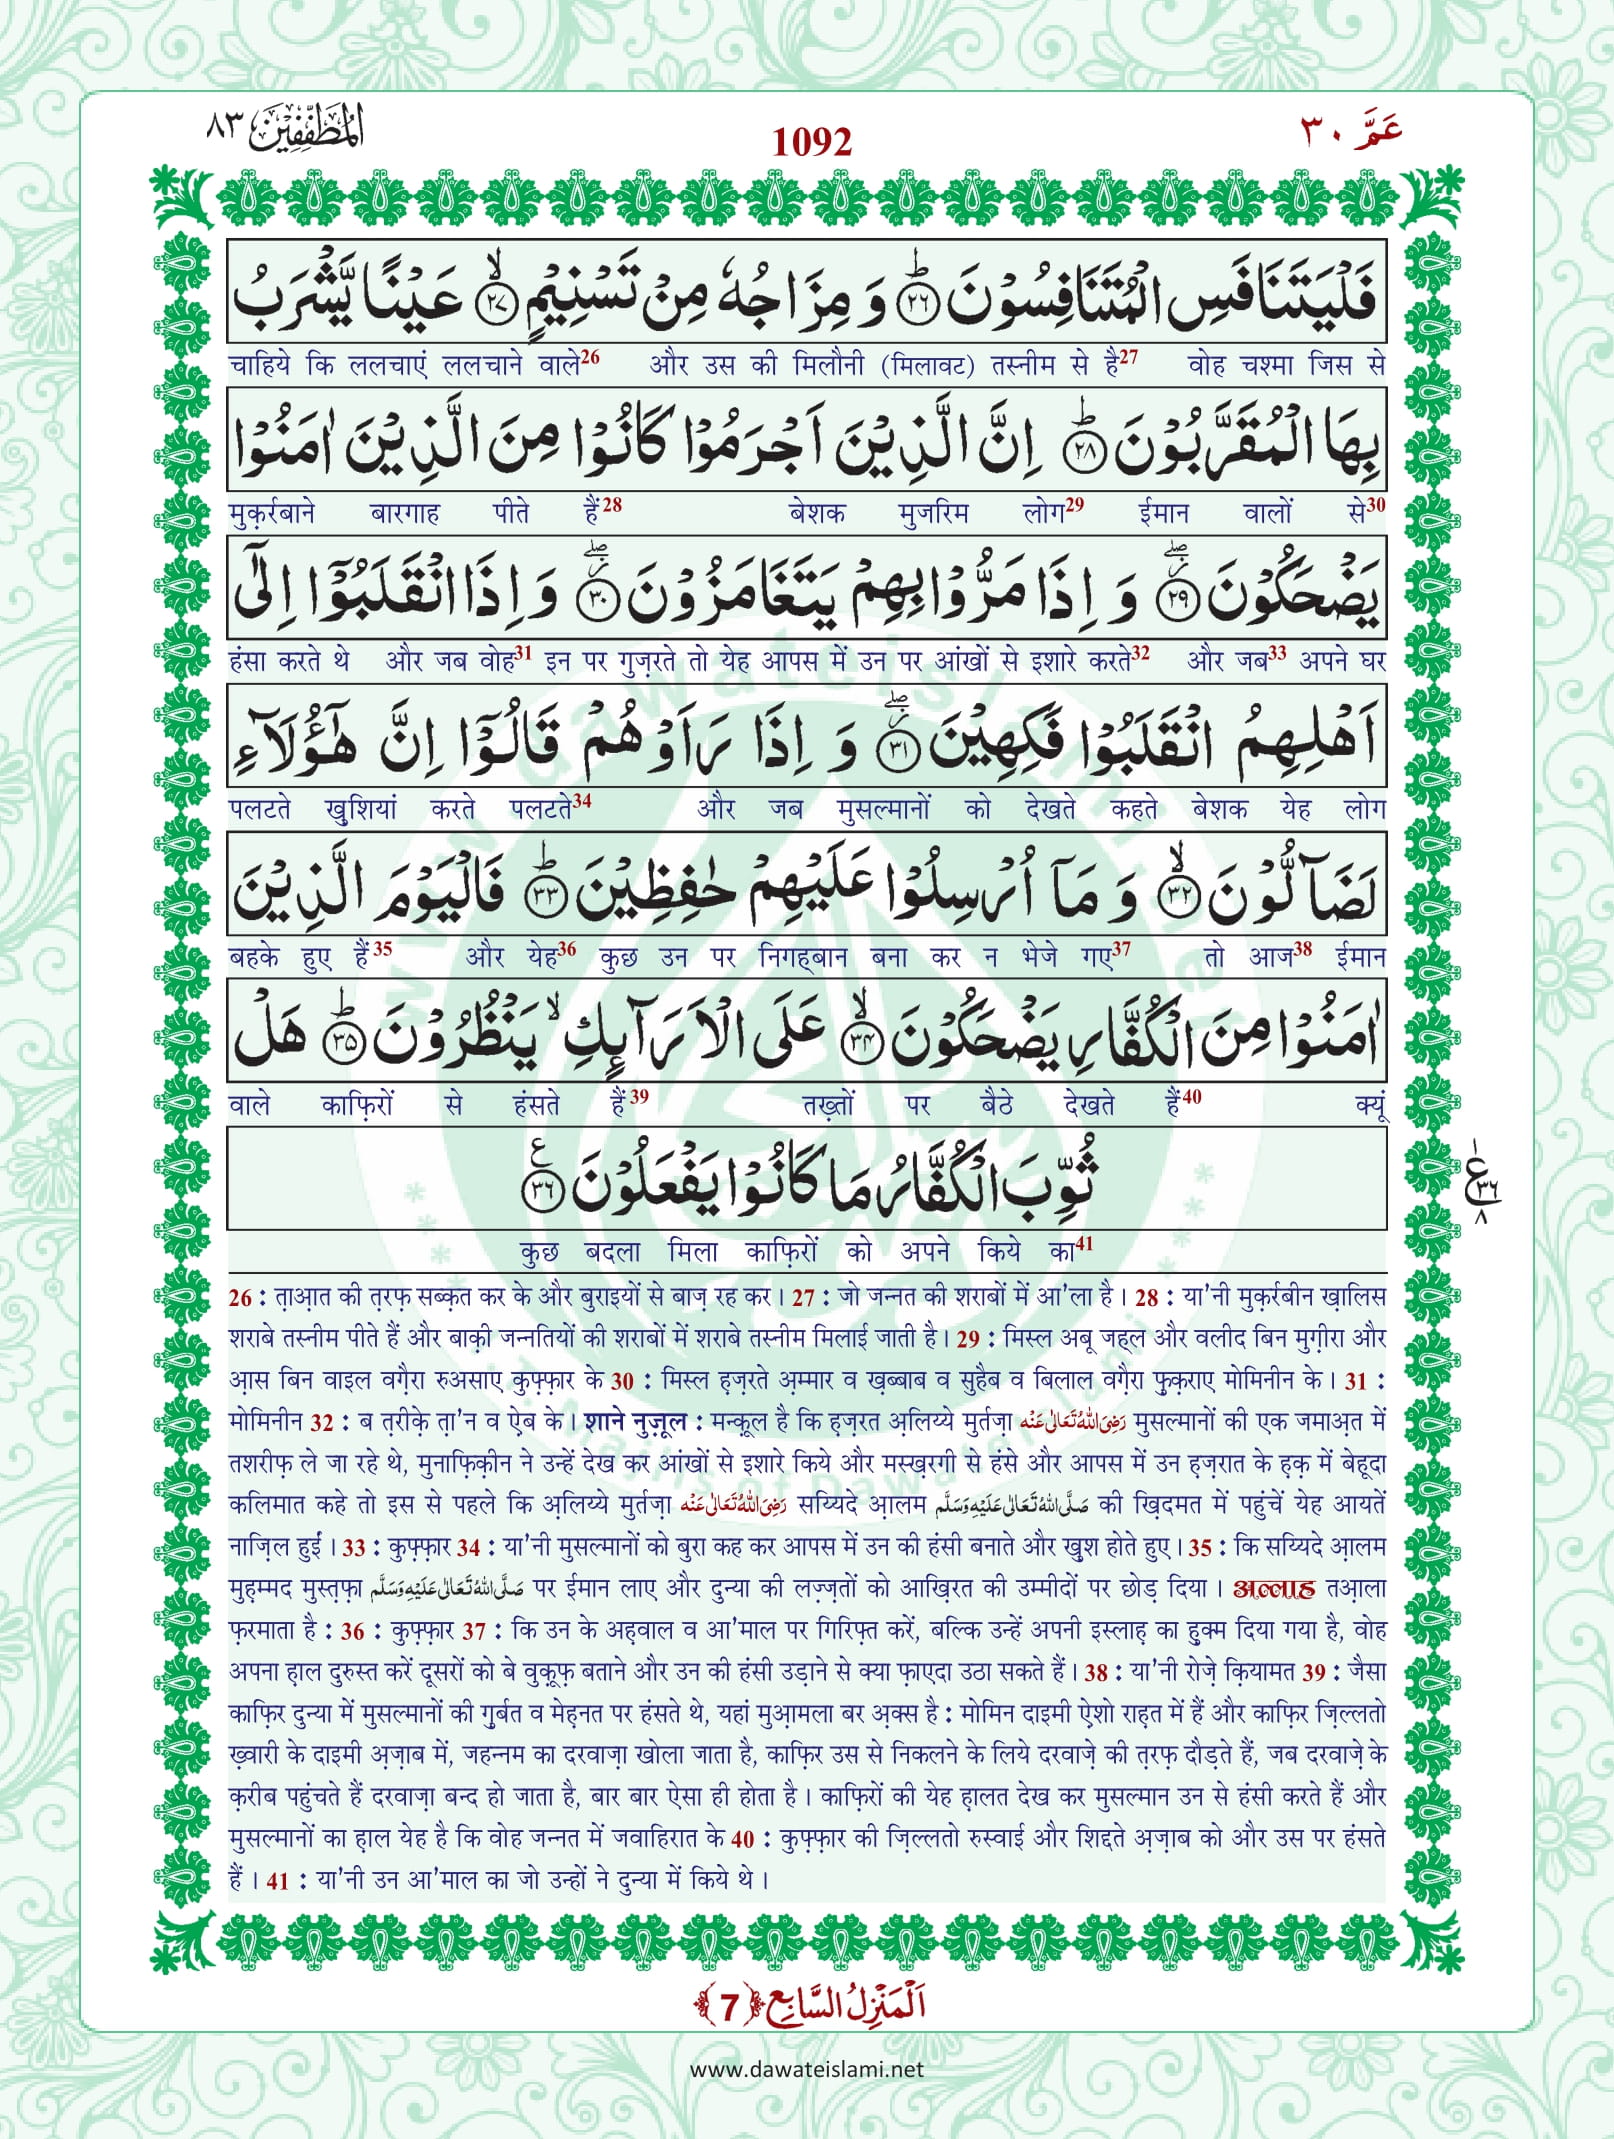 المطففین ۸۳
1092
عَمَّ ۳۰
فَلْیَتَنَافَسِ الْمُتَنَافِسُوْنَ ؕ۝۲۶ وَ مِزَاجُهٗ مِنْ تَسْنِیْمٍ ۙ۝۲۷ عَیْنًا یَّشْرَبُ
चाहिये कि ललचाएं ललचाने वाले26 और उस की मिलौनी (मिलावट) तस्नीम से है27 वोह चश्मा जिस से
بِهَا الْمُقَرَّبُوْنَ ؕ۝۲۸ اِنَّ الَّذِیْنَ اَجْرَمُوْا كَانُوْا مِنَ الَّذِیْنَ اٰمَنُوْا
मुक़र्रबाने बारगाह पीते हैं28 बेशक मुजरिम लोग29 ईमान वालों से30
یَضْحَكُوْنَ ؗۖ۝۲۹ وَ اِذَا مَرُّوْا بِهِمْ یَتَغَامَزُوْنَ ؗۖ۝۳۰ وَ اِذَا انْقَلَبُوْۤا اِلٰۤى
हंसा करते थे और जब वोह31 इन पर गुज़रते तो येह आपस में उन पर आंखों से इशारे करते32 और जब33 अपने घर
اَهْلِهِمُ انْقَلَبُوْا فَكِهِیْنَ ؗۖ۝۳۱ وَ اِذَا رَاَوْهُمْ قَالُوْۤا اِنَّ هٰۤؤُلَآءِ
पलटते खुशियां करते पलटते34 और जब मुसल्मानों को देखते कहते बेशक येह लोग
لَضَآلُّوْنَ ۙ۝۳۲ وَ مَاۤ اُرْسِلُوْا عَلَیْهِمْ حٰفِظِیْنَ ؕ۝۳۳ فَالْیَوْمَ الَّذِیْنَ
बहके हुए हैं35 और येह36 कुछ उन पर निगह्बान बना कर न भेजे गए37 तो आज38 ईमान
اٰمَنُوْا مِنَ الْكُفَّارِ یَضْحَكُوْنَ ۙ۝۳۴ عَلَى الْاَرَآىٕكِ ۙ یَنْظُرُوْنَ ؕ۝۳۵ هَلْ
वाले काफ़िरों से हंसते हैं39 तख़्तों पर बैठे देखते हैं40 क्यूं
ثُوِّبَ الْكُفَّارُ مَا كَانُوْا یَفْعَلُوْنَ ۠۝۳۶
ع ۳۶ ۸
कुछ बदला मिला काफ़िरों को अपने किये का41
26 : त़ाआ़त की त़रफ़ सब्क़त कर के और बुराइयों से बाज़ रह कर। 27 : जो जन्नत की शराबों में आ'ला है। 28 : या'नी मुक़र्रबीन ख़ालिस
शराबे तस्नीम पीते हैं और बाक़ी जन्नतियों की शराबों में शराबे तस्नीम मिलाई जाती है। 29 : मिस्ल अबू जह्ल और वलीद बिन मुग़ीरा और
आ़स बिन वाइल वग़ैरा रुअसाए कुफ़्फ़ार के 30 : मिस्ल ह़ज़रते अ़म्मार व ख़ब्बाब व सुहैब व बिलाल वग़ैरा फ़ुक़राए मोमिनीन के। 31 :
मोमिनीन 32 : ब त़रीक़े त़ा'न व ऐ़ब के। शाने नुज़ूल : मन्क़ूल है कि ह़ज़रत अ़लिय्ये मुर्तज़ा رَضِیَ اللّٰهُ تَعَالٰی عَنْه मुसल्मानों की एक जमाअ़त में
तशरीफ़ ले जा रहे थे, मुनाफ़िक़ीन ने उन्हें देख कर आंखों से इशारे किये और मस्ख़रगी से हंसे और आपस में उन ह़ज़रात के ह़क़ में बेहूदा
कलिमात कहे तो इस से पहले कि अ़लिय्ये मुर्तज़ा رَضِیَ اللّٰهُ تَعَالٰی عَنْه सय्यिदे आ़लम صَلَّی اللّٰهُ تَعَالٰی عَلَیْهِ وَسَلَّم की ख़िदमत में पहुंचें येह आयतें
नाज़िल हुईं। 33 : कुफ़्फ़ार 34 : या'नी मुसल्मानों को बुरा कह कर आपस में उन की हंसी बनाते और खुश होते हुए। 35 : कि सय्यिदे आ़लम
मुह़म्मद मुस्त़फ़ा صَلَّی اللّٰهُ تَعَالٰی عَلَیْهِ وَسَلَّم पर ईमान लाए और दुन्या की लज़्ज़तों को आख़िरत की उम्मीदों पर छोड़ दिया। अल्लाह तआ़ला
फ़रमाता है : 36 : कुफ़्फ़ार 37 : कि उन के अह़वाल व आ'माल पर गिरिफ़्त करें, बल्कि उन्हें अपनी इस्लाह़ का हुक्म दिया गया है, वोह
अपना ह़ाल दुरुस्त करें दूसरों को बे वुक़ूफ़ बताने और उन की हंसी उड़ाने से क्या फ़ाएदा उठा सकते हैं। 38 : या'नी रोज़े क़ियामत 39 : जैसा
काफ़िर दुन्या में मुसल्मानों की ग़ुर्बत व मेह़नत पर हंसते थे, यहां मुआ़मला बर अ़क्स है : मोमिन दाइमी ऐ़शो राह़त में हैं और काफ़िर ज़िल्लतो
ख़्वारी के दाइमी अ़ज़ाब में, जहन्नम का दरवाज़ा खोला जाता है, काफ़िर उस से निकलने के लिये दरवाज़े की त़रफ़ दौड़ते हैं, जब दरवाज़े के
क़रीब पहुंचते हैं दरवाज़ा बन्द हो जाता है, बार बार ऐसा ही होता है। काफ़िरों की येह ह़ालत देख कर मुसल्मान उन से हंसी करते हैं और
मुसल्मानों का ह़ाल येह है कि वोह जन्नत में जवाहिरात के 40 : कुफ़्फ़ार की ज़िल्लतो रुस्वाई और शिद्दते अ़ज़ाब को और उस पर हंसते
हैं। 41 : या'नी उन आ'माल का जो उन्हों ने दुन्या में किये थे।
اَلْمَنْزِلُ السَّابِع ﴿7﴾
www.dawateislami.net